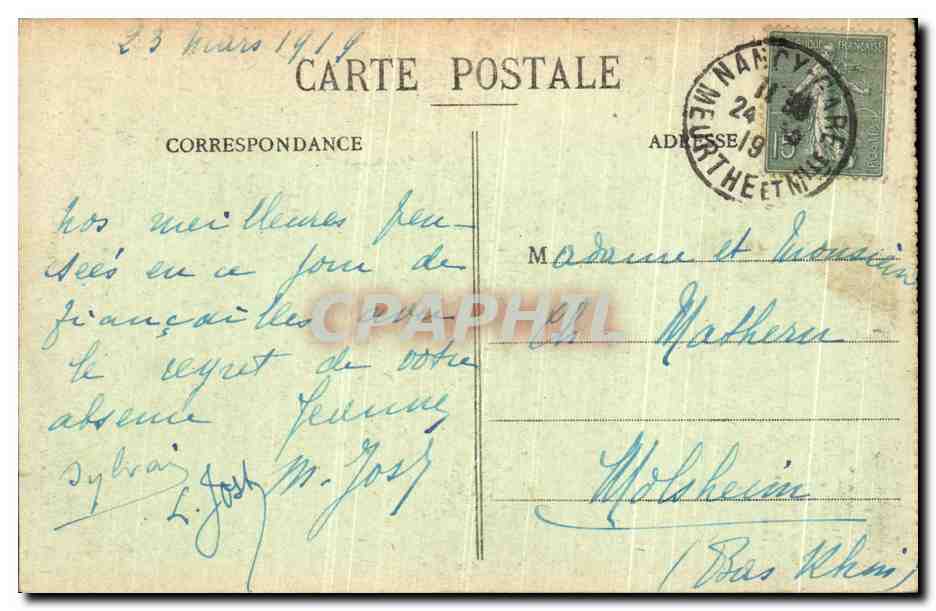 23 mars 1919
CARTE POSTALE
CORRESPONDANCE
ADRESSE
NANCY GARE
MEURTHE ET
24
19
15
FRANÇAISE
POSTES
nos meilleures pen-
sées en ce jour de
fiançailles avec
le regret de votre
absence Jeanne
Sylvain
L. Jost M. Jost
Madame et Monsieur
Ch Mathern
Molsheim
(Bas Rhin)
CPAPHIL